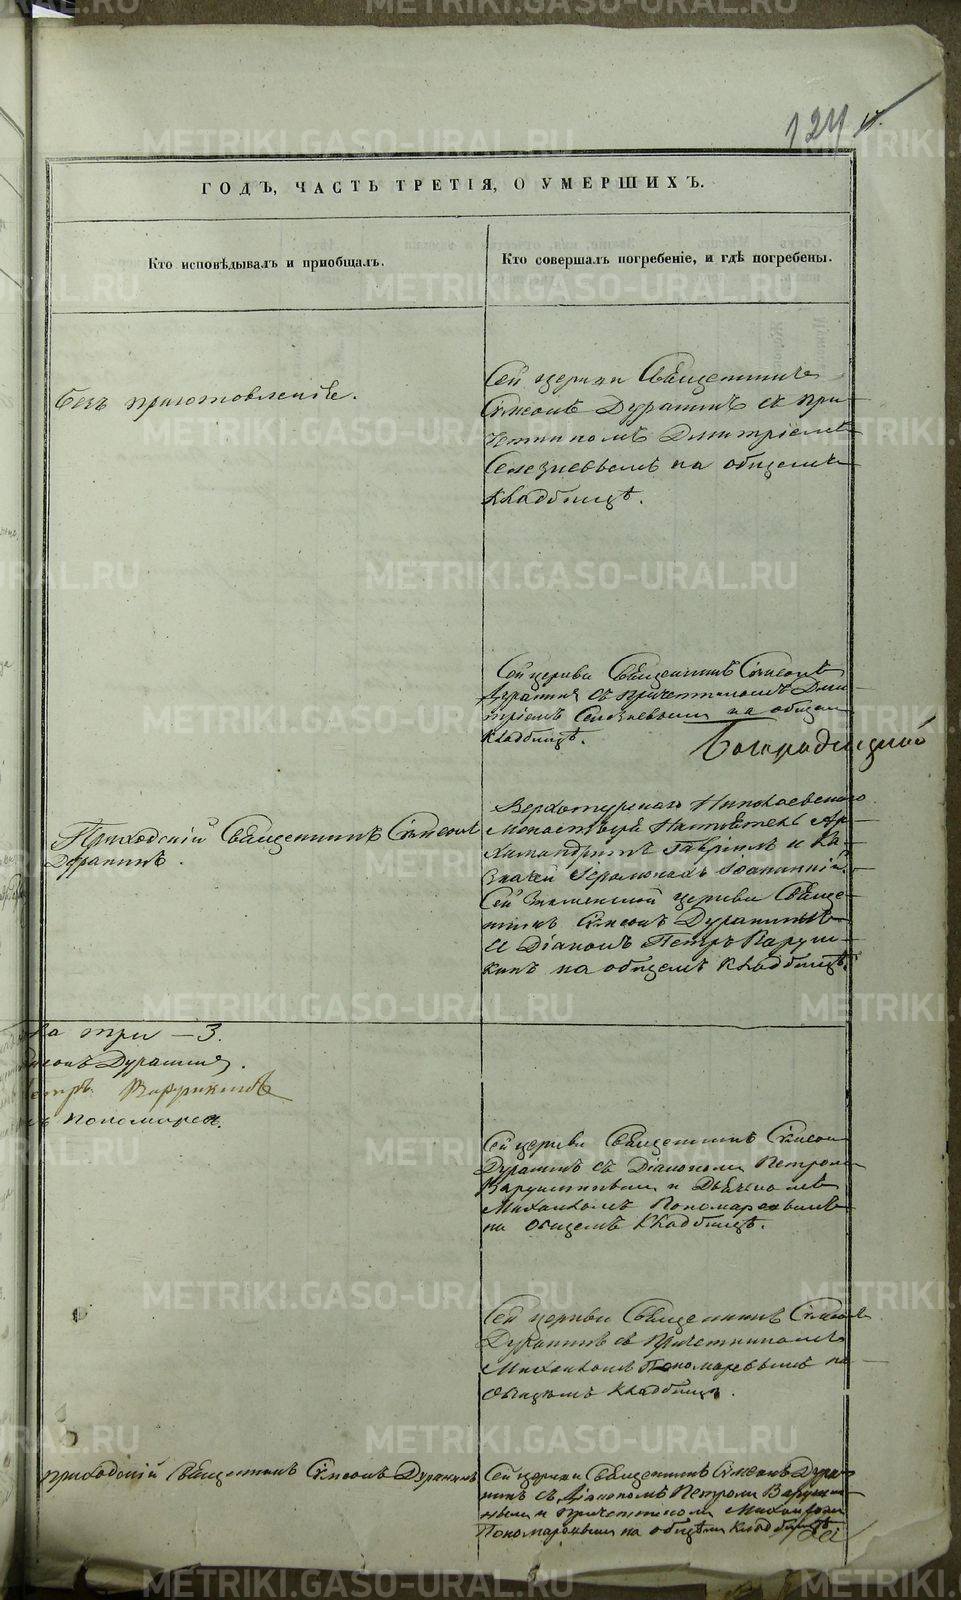 124
ГОДЪ, ЧАСТЬ ТРЕТІЯ, О УМЕРШИХЪ.
Кто исповѣдывалъ и приобщалъ.
Кто совершалъ погребеніе, и гдѣ погребены.
безъ приготовленія.
Сей церкви Священникъ
Симеонъ Дуранинъ съ при-
четникомъ Димитріемъ
Селезневымъ на общемъ
кладбищѣ.
Сей церкви Священникъ Симеонъ
Дуранинъ съ причетникомъ Дми-
тріемъ Селезневымъ на общем
кладбищѣ.
Богородицкой
Приходскій Священникъ Симеонъ
Дуранинъ.
Верхотурскаго Николаевскаго
Монастыря Настоятель Ар-
химандритъ Гавріилъ и Ка-
значей Іеромонахъ Іоанникій.
Сей Знаменской церкви Свяще-
нникъ Симеонъ Дуранинъ
и Діаконъ Петръ Варуш-
кинъ на общемъ кладбищѣ.
на три - 3.
меонъ Дуранинъ.
етръ Варушкинъ
ъ Пономарев.
Сей церкви Священникъ Симеон
Дуранинъ съ Діакономъ Петромъ
Варушкинымъ и Дьячкомъ
Михаиломъ Пономаревымъ
на общемъ кладбищѣ.
Сей церкви Священникъ Симеонъ
Дуранинъ съ Причетникомъ
Михаиломъ Пономаревымъ на
общемъ кладбищѣ.
приходскій Священникъ Симеонъ Дуранинъ
Сей церкви Священникъ Симеонъ Дура-
нинъ съ Діакономъ Петромъ Варушки-
нымъ и причетникомъ Михаиломъ
Пономаревымъ на общемъ кладбищѣ
METRIKI.GASO-URAL.RU